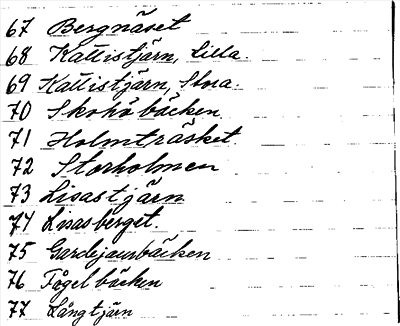 67 Bergnäset
68 Kallistjärn, Lilla.
69 Kallistjärn, Stora.
70 Skohöbäcken
71 Holmträsket.
72 Storholmen
73 Lisastjärn
74 Lisasberget.
75 Gardejaurbäcken
76 Fågelbäcken
77 Långtjärn